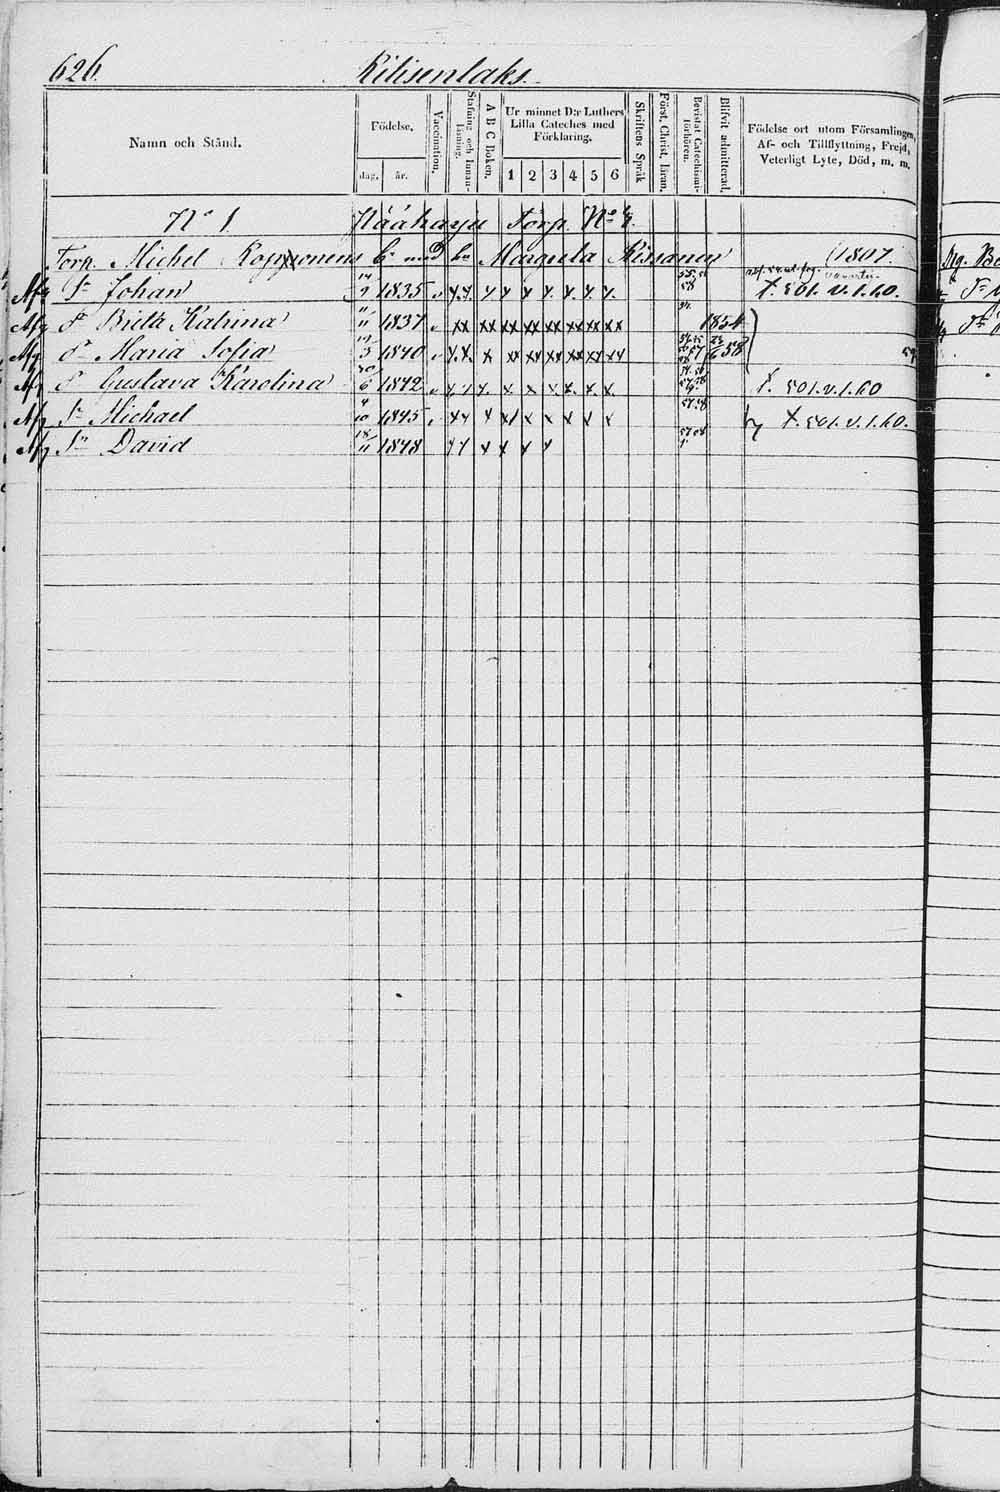 626. Kilisenlaks.
Namn och Stånd.
Födelse.
dag. år.
Vaccination.
Stafning och Innanläsning.
A B C Boken.
Ur minnet D:r Luthers Lilla Cateches med Förklaring.
1 2 3 4 5 6
Skriftens Språk
Först. Christ. läran.
Bevistat Catechismiförhören.
Blifvit admitterad.
Födelse ort utom Församlingen, Af- och Tillflyttning, Frejd, Veterligt Lyte, Död, m. m.
No 1 Torp. No
Torp. Michel Kopponens med Margeta Rissanen 1807.
Afg Sn Johan 9 1835 x x x x x x x x x 58 t. 501. v. 1. 60.
Afg Dr Brita Katrina 11 1837 xx xx xx xx xx xx xx xx 1854
Afg Dr Maria Sofia 3 1840 x x x xx xx xx xx xx xx 6 58
Afg Dr Gustava Karolina 30/6 1842 x x x x x x x x x t. 501. v. 1. 60
Afg Sn Michael 10 1845 x x x x x x x x x 57 58 t. 501. v. 1. 60.
Afg Sn David 18/11 1848 x x x x x x